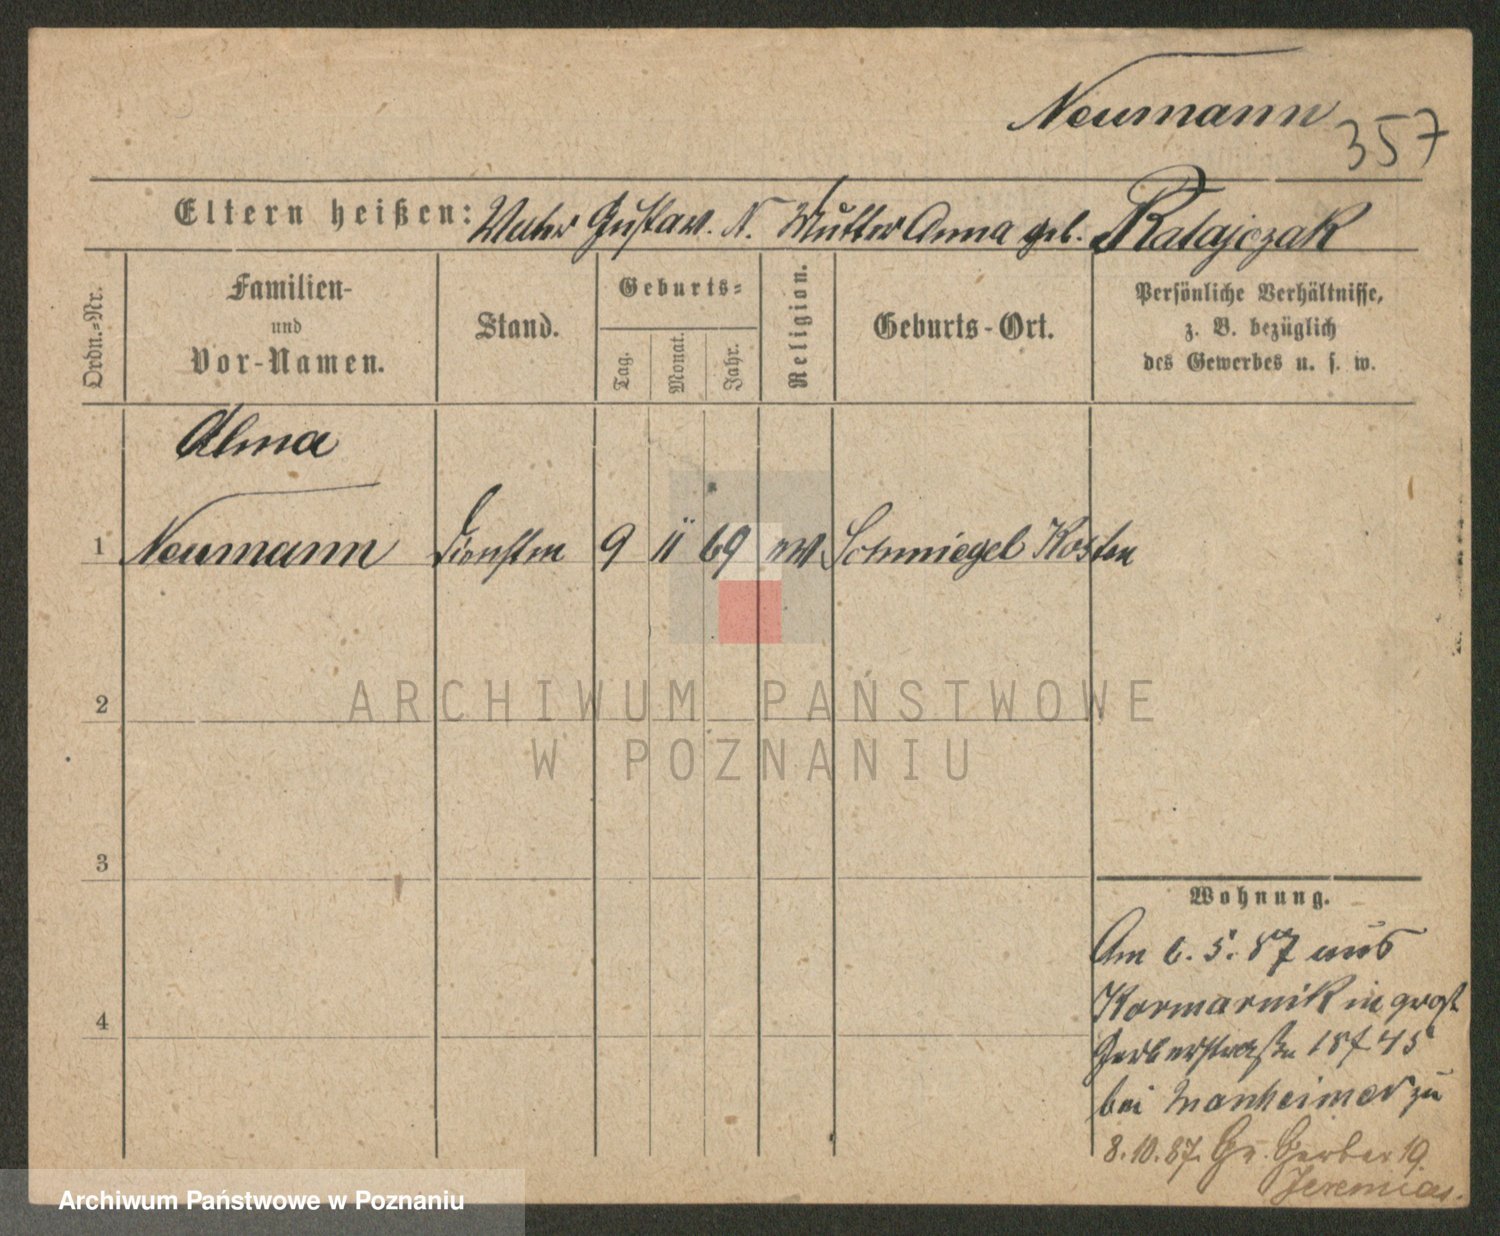 Neumann
357
Eltern heißen: Vater Gustav. N. Mutter Anna geb. Ratajczak
Ordn.-Nr.
Familien-
und
Vor-Namen.
Stand.
Geburts-
Tag.
Monat.
Jahr.
Religion.
Geburts-Ort.
Persönliche Verhältnisse,
z. B. bezüglich
des Gewerbes u. s. w.
Alma
1 Neumann 9 11 69 ev Schmiegel Kosten
2
3
4
ARCHIWUM PAŃSTWOWE
W POZNANIU
Wohnung.
Am 6. 5. 87 aus
Kormarnik in
Gerberstraße
bei Manheimer zu
8.10.87. Gr. Gerber 19.
Jeremias.
Archiwum Państwowe w Poznaniu